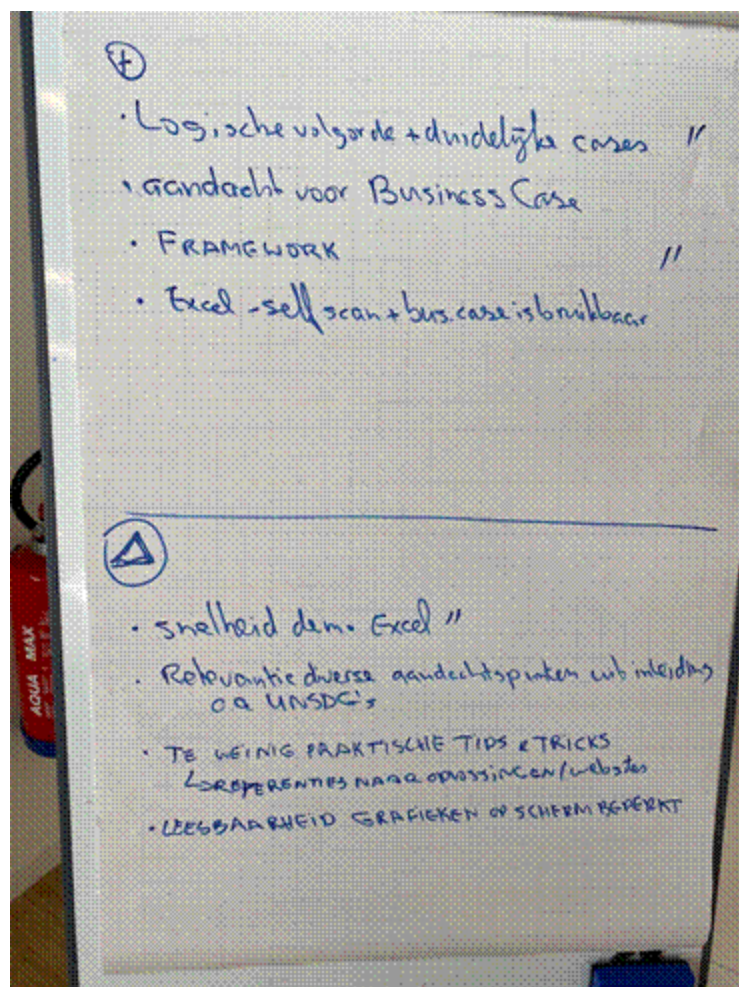 +
· Logische volgorde + duidelijke cases "
· aandacht voor Business Case
· FRAMEWORK "
· Excel - self scan + bus. case is bruikbaar
Δ
· snelheid demo Excel "
· Relevantie diverse aandachtspunten uit inleiding
o a UNSDG's
· TE WEINIG PRAKTISCHE TIPS & TRICKS
↳ REFERENTIES NAAR OPLOSSINGEN/websites
· LEESBAARHEID GRAFIEKEN OP SCHERM BEPERKT
AQUA MAX